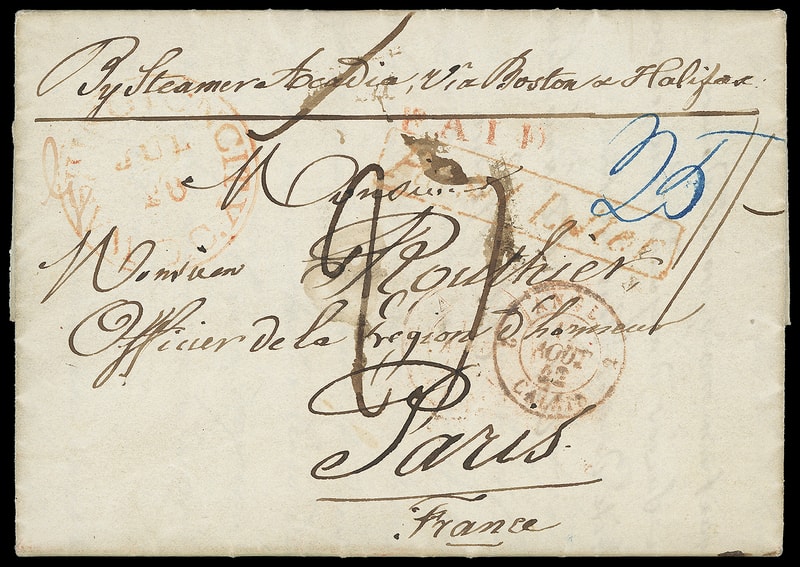 By Steamer Acadia, via Boston & Halifax.
PAID
JUL
25
Monsieur
Letter
Monsieur Routhier,
Officier de la Legion d'honneur
27
AOUT
42
CALAIS
Paris.
France